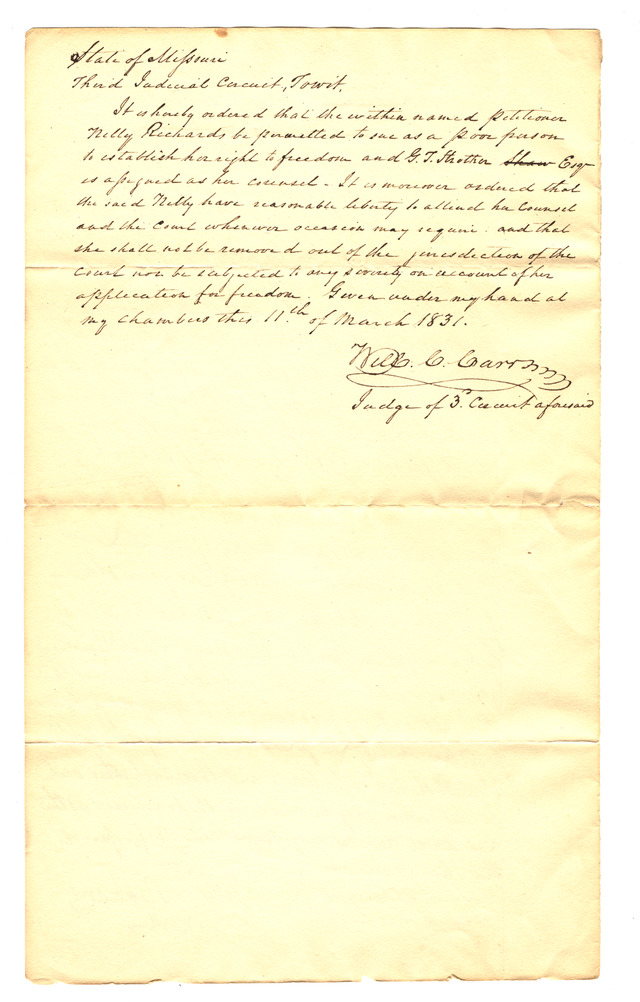 State of Missouri
Third Judicial Circuit, Towit,
It is hereby ordered that the within named Petitioner
Nelly Richards be permitted to sue as a poor person
to establish her right to freedom and G. T. Strother Shaw Esqr
is assigned as her counsel - It is moreover ordered that
the said Nelly have reasonable liberty to attend her Counsel
and the Court whenever occasion may require. and that
she shall not be removed out of the jurisdiction of the
Court nor be subjected to any severity on account of her
application for freedom. Given under my hand at
my Chambers this 11th of March 1831.
Will. C. Carr
Judge of 3d. Circuit aforesaid